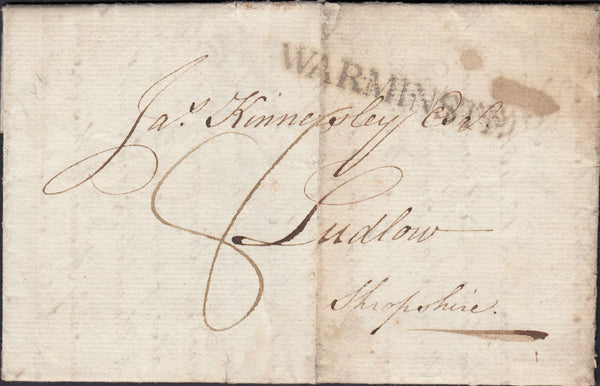 WARMINSTER
Jas. Kinnersley Esq.
8 Ludlow
Shropshire.